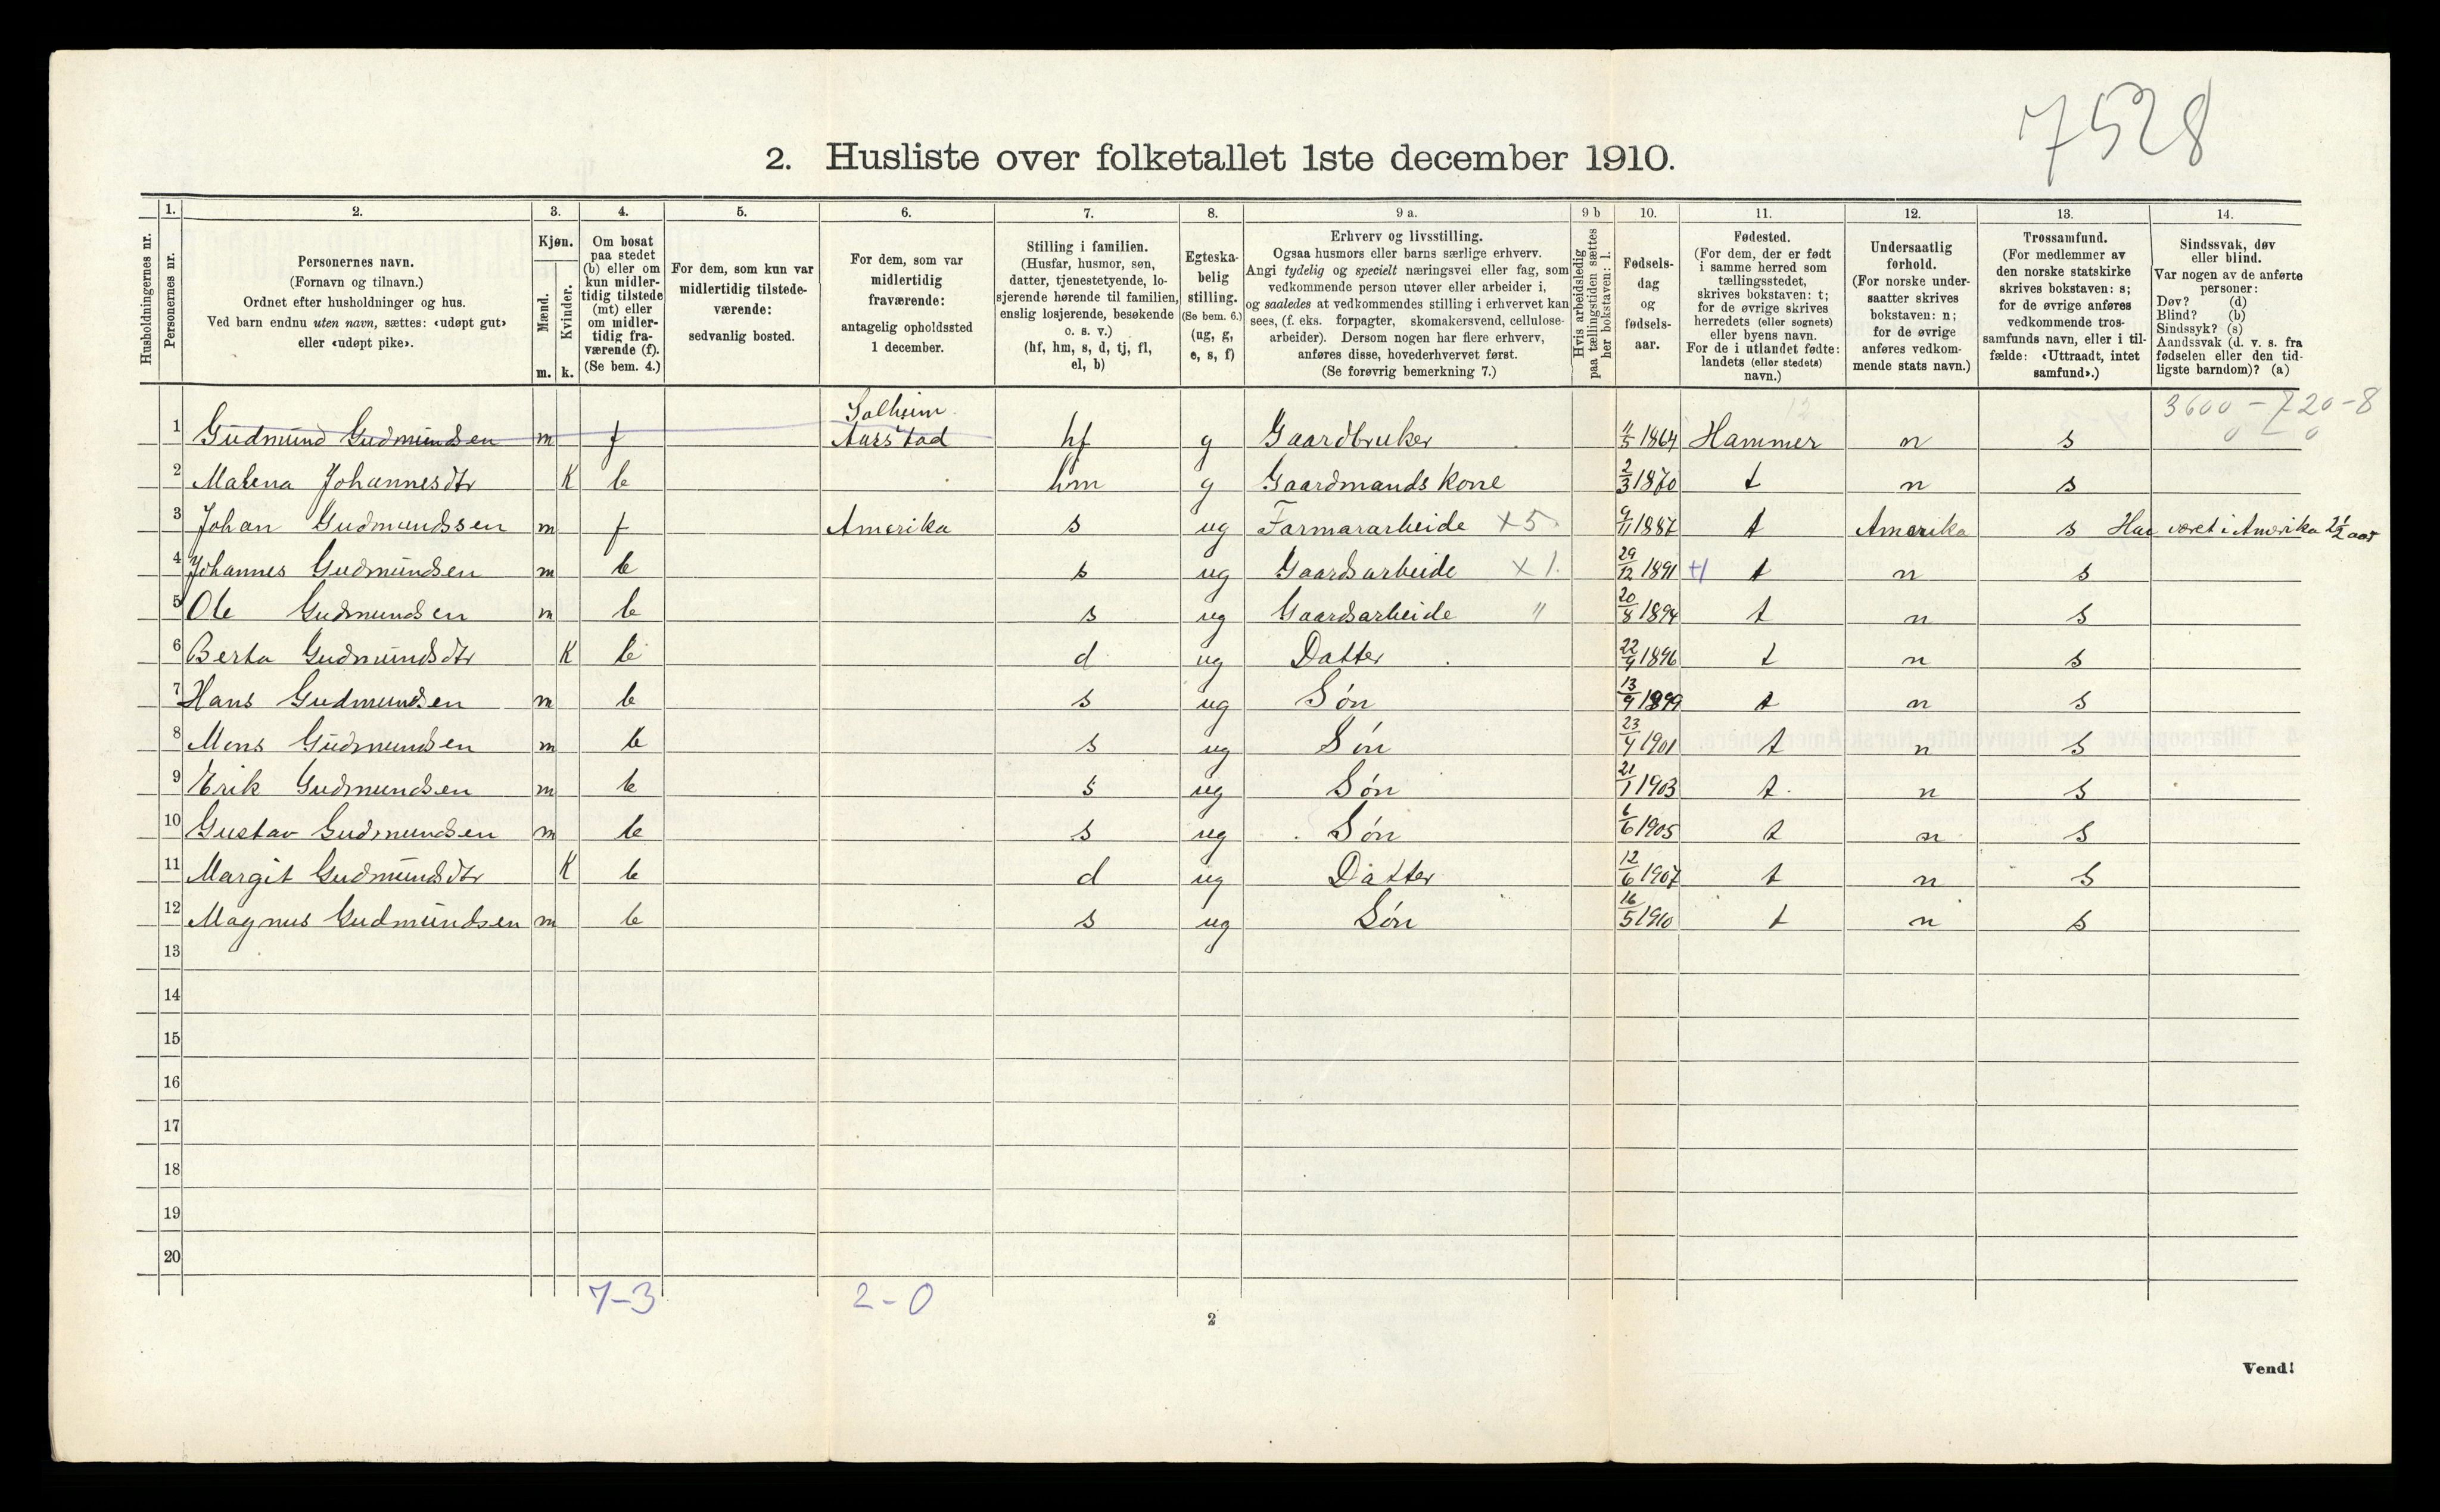 7528
2. Husliste over folketallet 1ste december 1910.
1. 2. 3. 4. 5. 6. 7. 8. 9 a. 9 b 10. 11. 12. 13. 14.
Husholdningernes nr.
Personernes nr.
Personernes navn.
(Fornavn og tilnavn.)
Ordnet efter husholdninger og hus.
Ved barn endnu uten navn, sættes: «udøpt gut»
eller «udøpt pike».
Kjøn.
Mænd.
Kvinder.
m. k.
Om bosat
paa stedet
(b) eller om
kun midler-
tidig tilstede
(mt) eller
om midler-
tidig fra-
værende (f).
(Se bem. 4.)
For dem, som kun var
midlertidig tilstede-
værende:
sedvanlig bosted.
For dem, som var
midlertidig
fraværende:
antagelig opholdssted
1 december.
Stilling i familien.
(Husfar, husmor, søn,
datter, tjenestetyende, lo-
sjerende hørende til familien,
enslig losjerende, besøkende
o. s. v.)
(hf, hm, s, d, tj, fl,
el, b)
Egteska-
belig
stilling.
(Se bem. 6.)
(ug, g,
e, s, f)
Erhverv og livsstilling.
Ogsaa husmors eller barns særlige erhverv.
Angi tydelig og specielt næringsvei eller fag, som
vedkommende person utøver eller arbeider i,
og saaledes at vedkommendes stilling i erhvervet kan
sees, (f. eks. forpagter, skomakersvend, cellulose-
arbeider). Dersom nogen har flere erhverv,
anføres disse, hovederhvervet først.
(Se forøvrig bemerkning 7.)
Hvis arbeidsledig
paa tællingstiden sættes
her bokstaven: l.
Fødsels-
dag
og
fødsels-
aar.
Fødested.
(For dem, der er født
i samme herred som
tællingsstedet,
skrives bokstaven: t;
for de øvrige skrives
herredets (eller sognets)
eller byens navn.
For de i utlandet fødte:
landets (eller stedets)
navn.)
Undersaatlig
forhold.
(For norske under-
saatter skrives
bokstaven: n;
for de øvrige
anføres vedkom-
mende stats navn.)
Trossamfund.
(For medlemmer av
den norske statskirke
skrives bokstaven: s;
for de øvrige anføres
vedkommende tros-
samfunds navn, eller i til-
fælde: «Uttraadt, intet
samfund».)
Sindssvak, døv
eller blind.
Var nogen av de anførte
personer:
Døv? (d)
Blind? (b)
Sindssyk? (s)
Aandssvak (d. v. s. fra
fødselen eller den tid-
ligste barndom)? (a)
12
3600 - 720-8
0 - 0
Solheim
1 Gudmund Gudmundsen m f Aarstad hf g Gaardbruker 11/5 1864 Hammer n s
2 Malena Johannesdtr K b hm g Gaardmands Kone 2/3 1870 t n s
3 Johan Gudmundssen m f Amerika s ug Farmararbeide x 5 9/11 1887 t Amerika s Har været i Amerika 2 1/2 aar
4 Johannes Gudmundsen m b s ug Gaardsarbeide x 1. 29/12 1891 +1 t n s
5 Ole Gudmundsen m b s ug Gaardsarbeide " 20/8 1894 t n s
6 Berta Gudmundsdtr K b d ug Datter 22/9 1896 t n s
7 Hans Gudmundsen m b s ug Søn 13/9 1899 t n s
8 Mons Gudmundsen m b s ug Søn 23/4 1901 t n s
9 Erik Gudmundsen m b s ug Søn 21/1 1903 t n s
10 Gustav Gudmundsen m b s ug Søn 6/6 1905 t n s
11 Margit Gudmundsdtr K b d ug Datter 12/6 1907 t n s
12 Magnus Gudmundsen m b s ug Søn 16/5 1910 t n s
13
14
15
16
17
18
19
20
7-3 2-0
2
Vend!